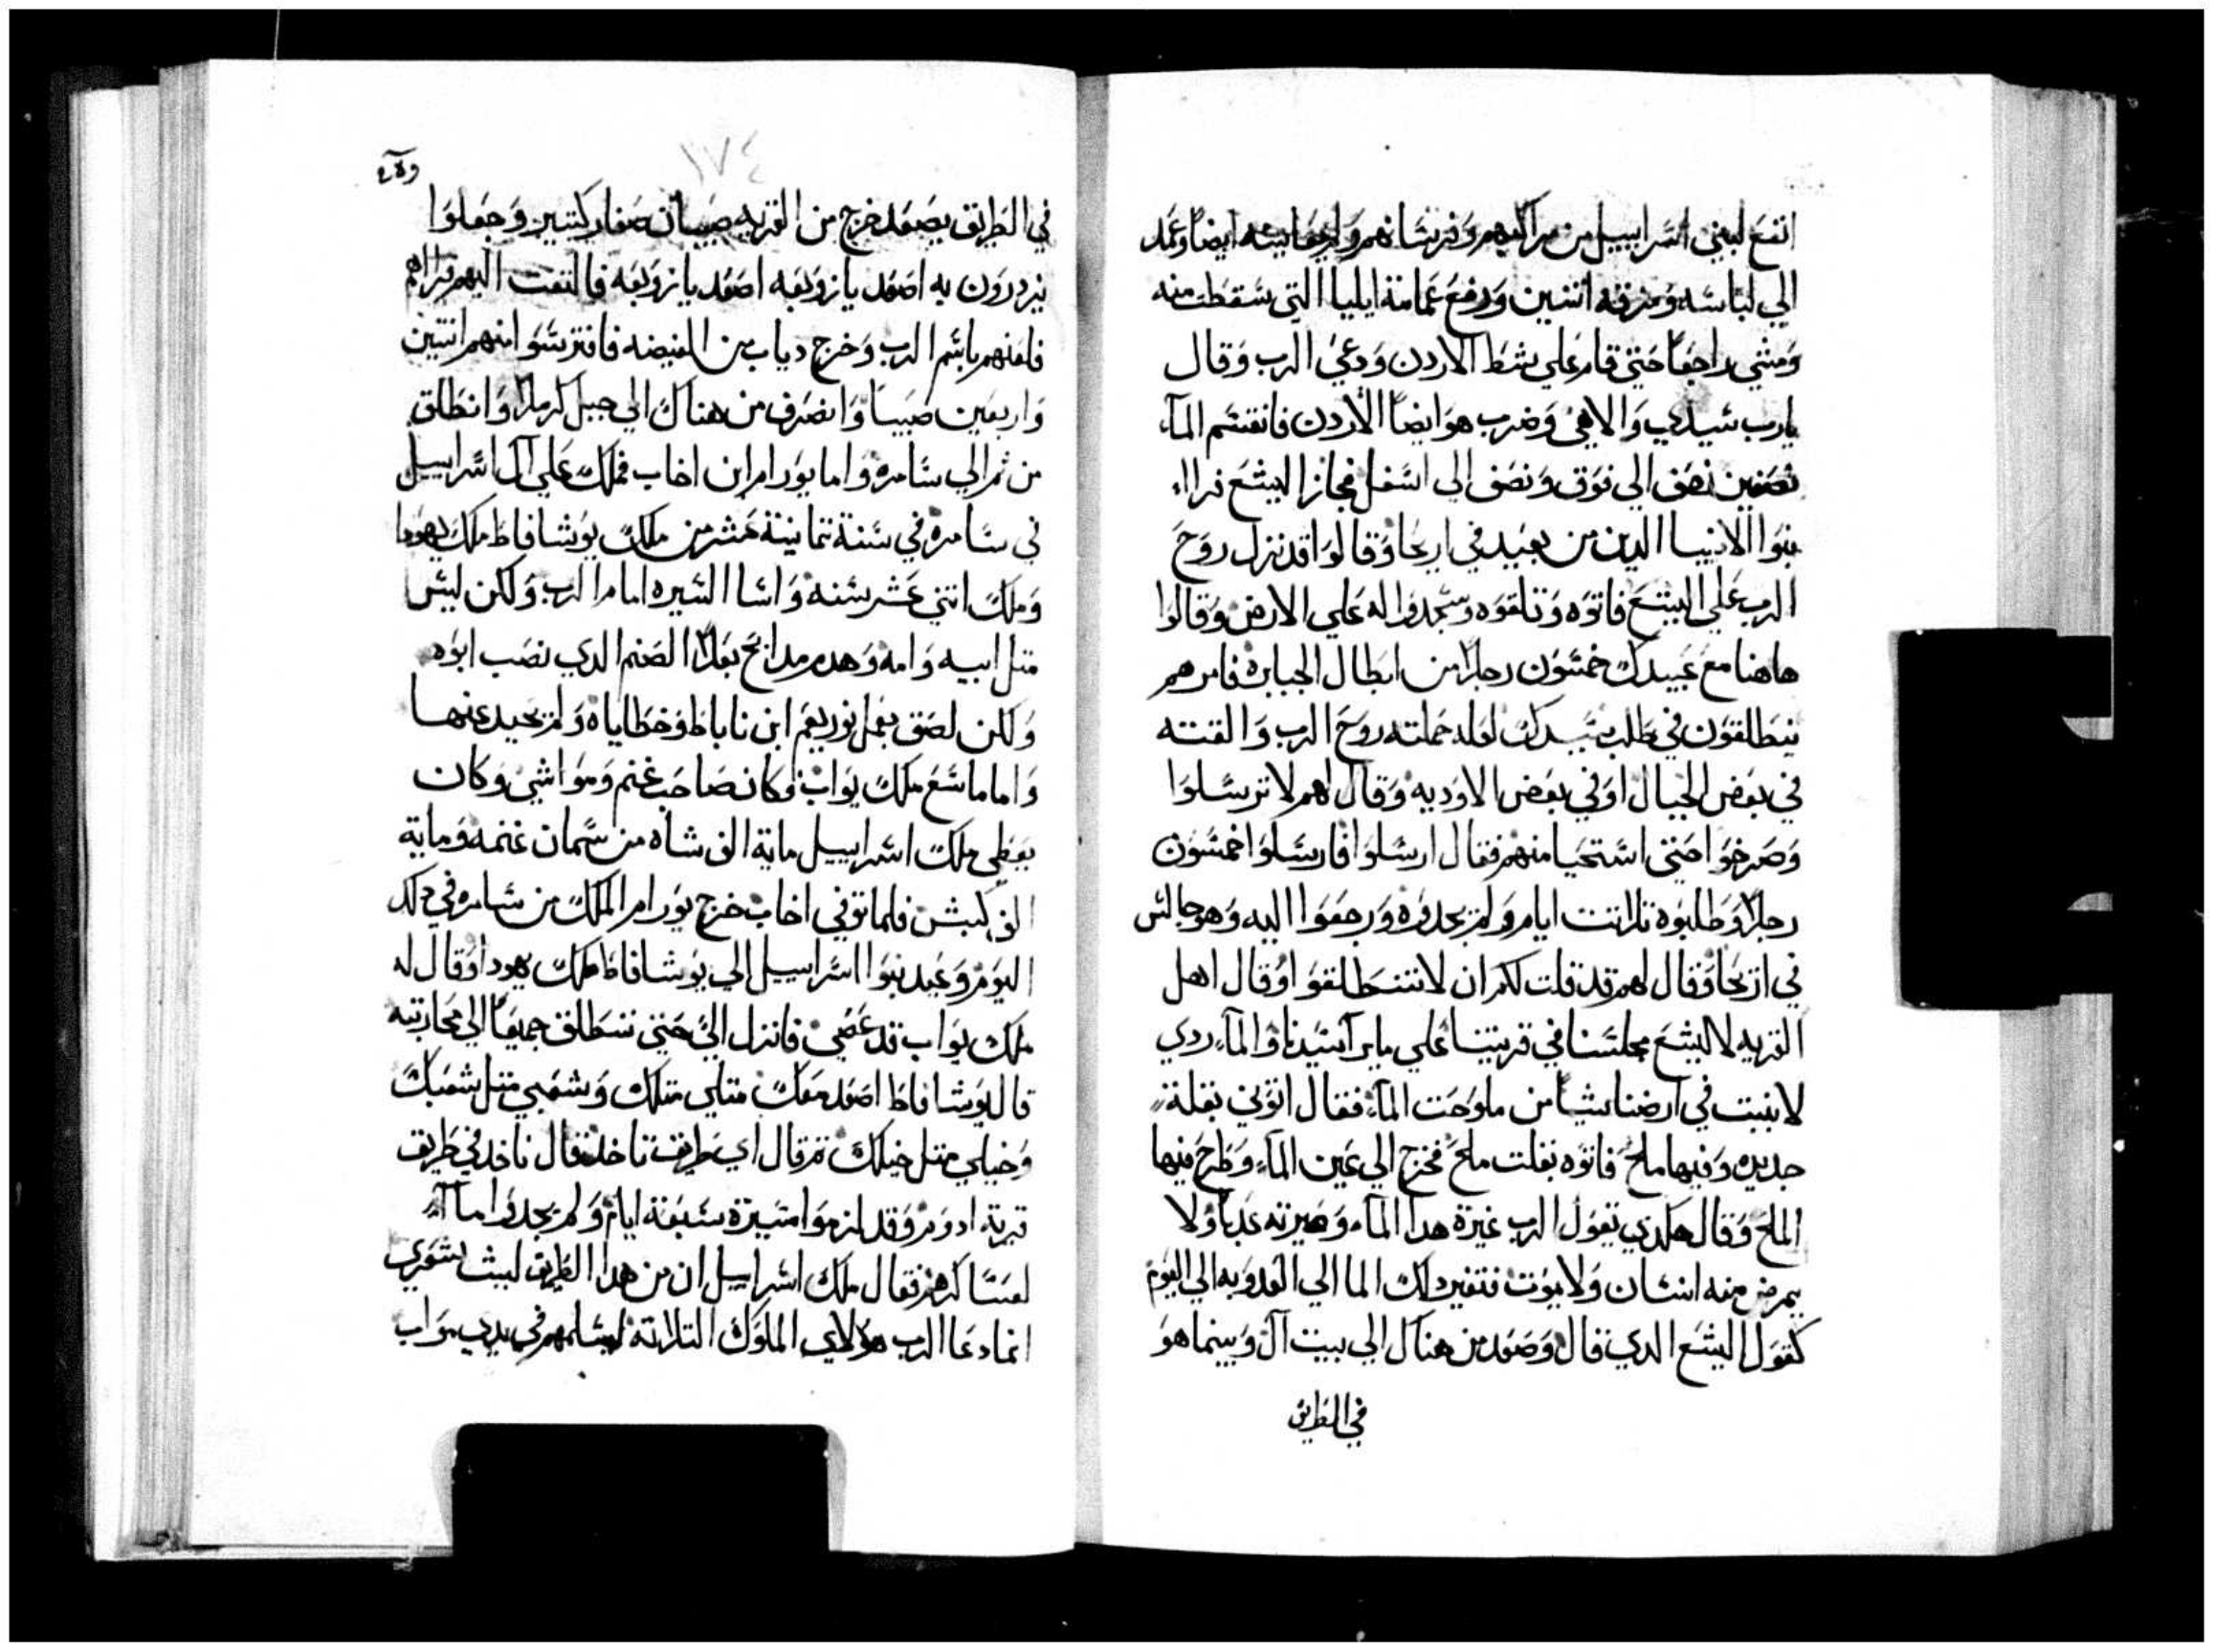 انفع لبني اسراييل من مراكبهم وفرسانهم ايضا وعمد
الي لباسه ومزقه اتنين ورفع عمامة ايليا التي سقطت منه
ومشي راجعا حتي قام علي شط الاردن ودعي الرب وقال
يارب سيدي والاهي وضرب هو ايضا الاردن فانقسم الماء
نصفين نصف الي فوق ونصف الي اسفل فجاز اليشع فراه
بنوا الانبيا الدين من بعيد في اريحا وقالوا قد نزل روح
الرب علي اليشع فاتوه وتلقوه وسجدوا له علي الارض وقالوا
هاهنا مع عبيدك خمسون رجلا من ابطال الجبابرة فامرهم
ينطلقون في طلب سيدك لعله حملته روح الرب والقته
في بعض الجبال او في بعض الاوديه وقال لهم لا ترسلوا
وصرخوا حتي استحيا منهم فقال ارسلوا فارسلوا خمسون
رجلا وطلبوه تلاتت ايام ولم يجدوه ورجعوا اليه وهو جالس
في اريحا وقال لهم قد قلت لكم ان لا تنطلقوا وقال اهل
القريه لاليشع مجلسنا في قريتنا علي ما يرا سيدنا والماء ردي
لا ينبت في ارضنا شيا من ملوحت الماء فقال اتوني بقلة
جديده وفيها ملح فاتوه بقلت ملح فخرج الي عين الماء وطرح فيها
الملح وقال هكدي يقول الرب غيرة هدا الماء وصيرته عدبا ولا
يمرض منه انسان ولا يموت فتغير دلك الما الي العدوبه الي اليوم
كقول اليشع الدي قال وصعد من هناك الي بيت ال وبينما هو
في الطريق
١٧٤
في الطريق يصعد خرج من القريه صبيان صغار كتيرين وجعلوا
يزدرون به اصعد يا زوبعه اصعد يا زوبعه فالتفت اليهم فراهم
فلعنهم باسم الرب وخرج دياب من الغيضه فافترسوا منهم اتنين
واربعين صبيا وانصرف من هناك الي جبل كرملا وانطلق
من تم الي سامره واما يورام ابن اخاب فملك علي ال اسراييل
في سامره في سنة تمانية عشر من ملك يوشافاط ملك يهودا
وملك اتني عشر سنه واسا السيره امام الرب ولكن ليس
متل ابيه وامه وهدم مدابح بعلا الصنم الدي نصب ابوه
ولكن لصق بعمل يوربعم ابن ناباط وخطاياه ولم يحيد عنها
واما ماسع ملك يواب فكان صاحب غنم ومواشي وكان
يعطي ملك اسراييل ماية الف شاه من سمان غنمه وماية
الف كبش فلما توفي اخاب خرج يورام الملك من سامره في دلك
اليوم وعبد بنوا اسراييل الي يوشافاط ملك يهودا وقال له
ملك يواب قد عصي فانزل الي حتي ننطلق جميعا الي محاربته
قال يوشافاط اصعد معك متلي متلك وشعبي متل شعبك
وخيلي متل خيلك تم قال اي طريق ناخد فقال ناخد في طريق
قرية ادوم وقد لزموا مسيرة سبعة ايام ولم يجدوا ماء
لعساكرهم فقال ملك اسراييل ان من هدا الطريق
انما دعا الرب هولاي الملوك التلاته ليسلمهم في يدي يواب